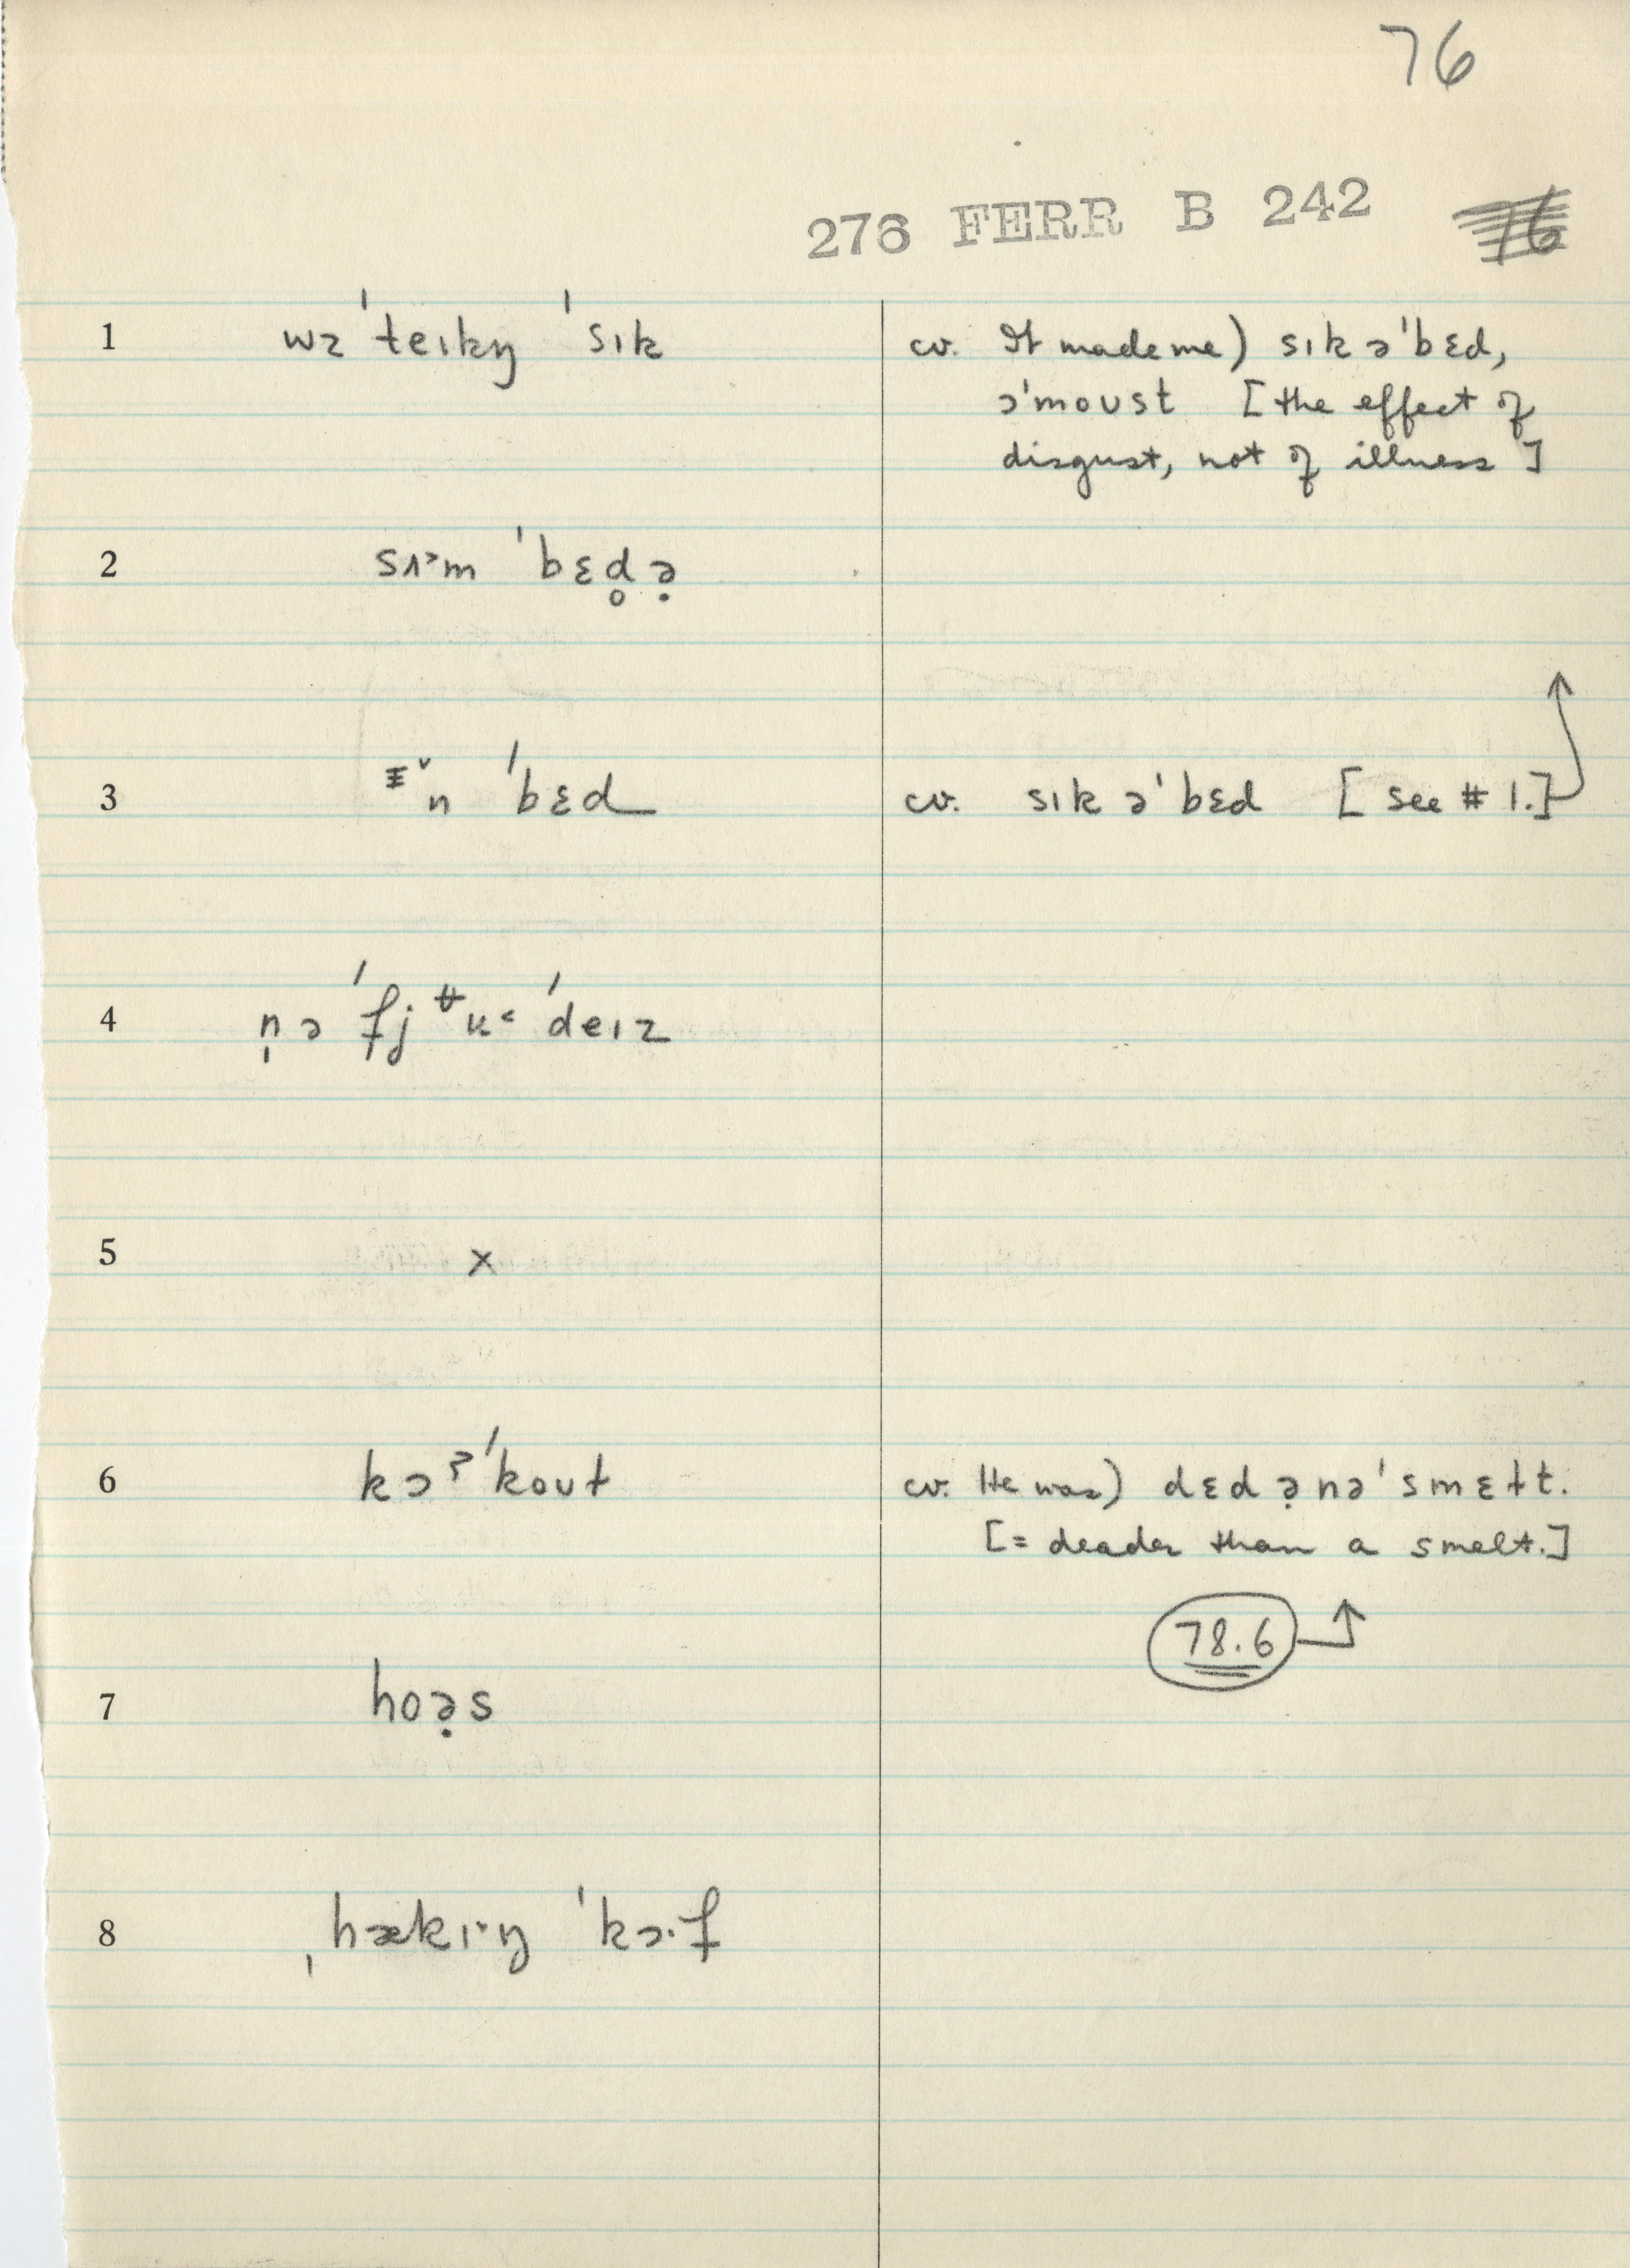 76
276 FERR B 242
1 wɜ ˈteɪkŋ ˈsɪk cv. It made me) sɪk əˈbɛd,
əˈmoʊst [the effect of
disgust, not of illness]
2 sʌ˃m ˈbɛd̥ə̣
3 n ˈbɛd cv. sɪk əˈbɛd [see # 1.]
4 n̩ə ˈfjʉ˂ ˈdeɪz
5 x
6 kɔˀ ˈkoʊt cv. He was) dɛd ə̣nəˈsmɛɫt.
[= deader than a smelt.]
78.6
7 hoə̣s
8 ˌhækɪŋ ˈkɔ·f